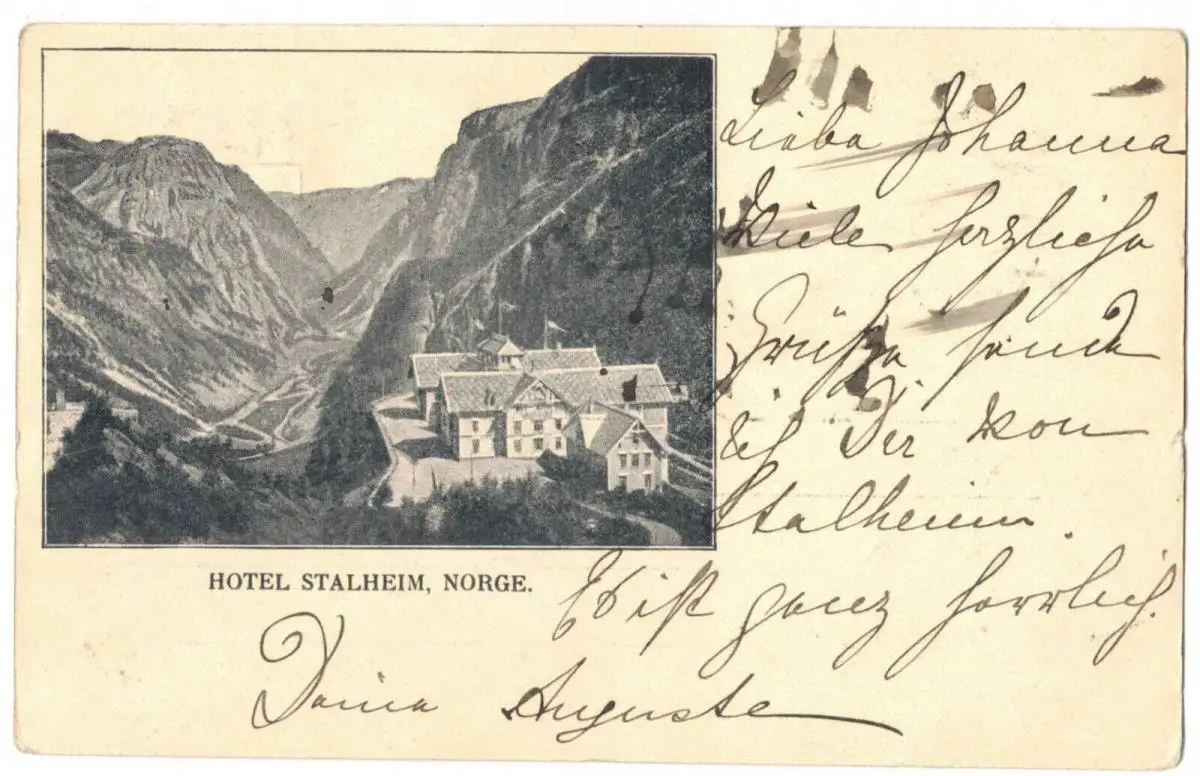 Liebe Johanna
Viele herzliche
Grüße sende
ich Dir von
Stalheim.
Es ist ganz herrlich.
Deine Auguste
HOTEL STALHEIM, NORGE.